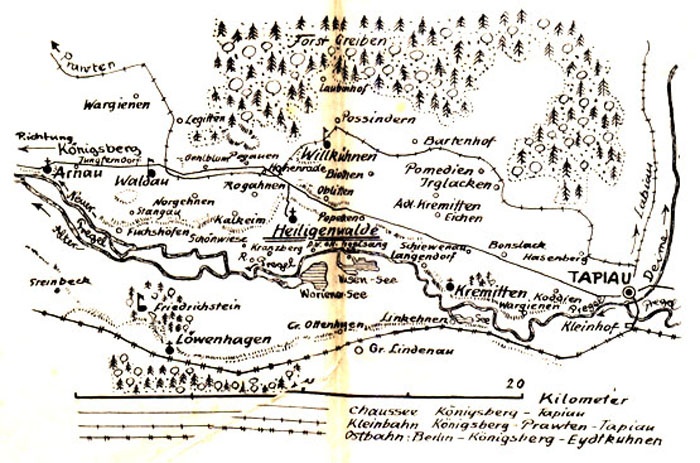 Forst Greiben
Prawten
Laubenhof
Wargienen
Legitten
Possindern
Richtung
Königsberg
Jungferndorf
Oehlblum
Pogauen
Willkühnen
Bartenhof
Arnau
Waldau
Hohenrade
Biothen
Pomedien
Irglacken
Rogahnen
Oblitten
Adl. Kremitten
Eichen
Norgehnen
Stangau
Kalkeim
Popeken
Neuer
Pregel
Alter
Fuchshöfen
Heiligenwalde
Schönwiese
Kranzberg
Schiewenau
Bonslack
Hasenberg
Langendorf
Labiau
Deime
TAPIAU
Steinbeck
Woriener-See
See
Kremitten
Friedrichstein
Wargienen
Koddien
Pregel
Pregel
Linkehnen
See
Kleinhof
Gr. Ottenhagen
Löwenhagen
Gr. Lindenau
20
Kilometer
Chaussee Königsberg - Tapiau
Kleinbahn Königsberg - Prawten - Tapiau
Ostbahn: Berlin - Königsberg - Eydtkuhnen